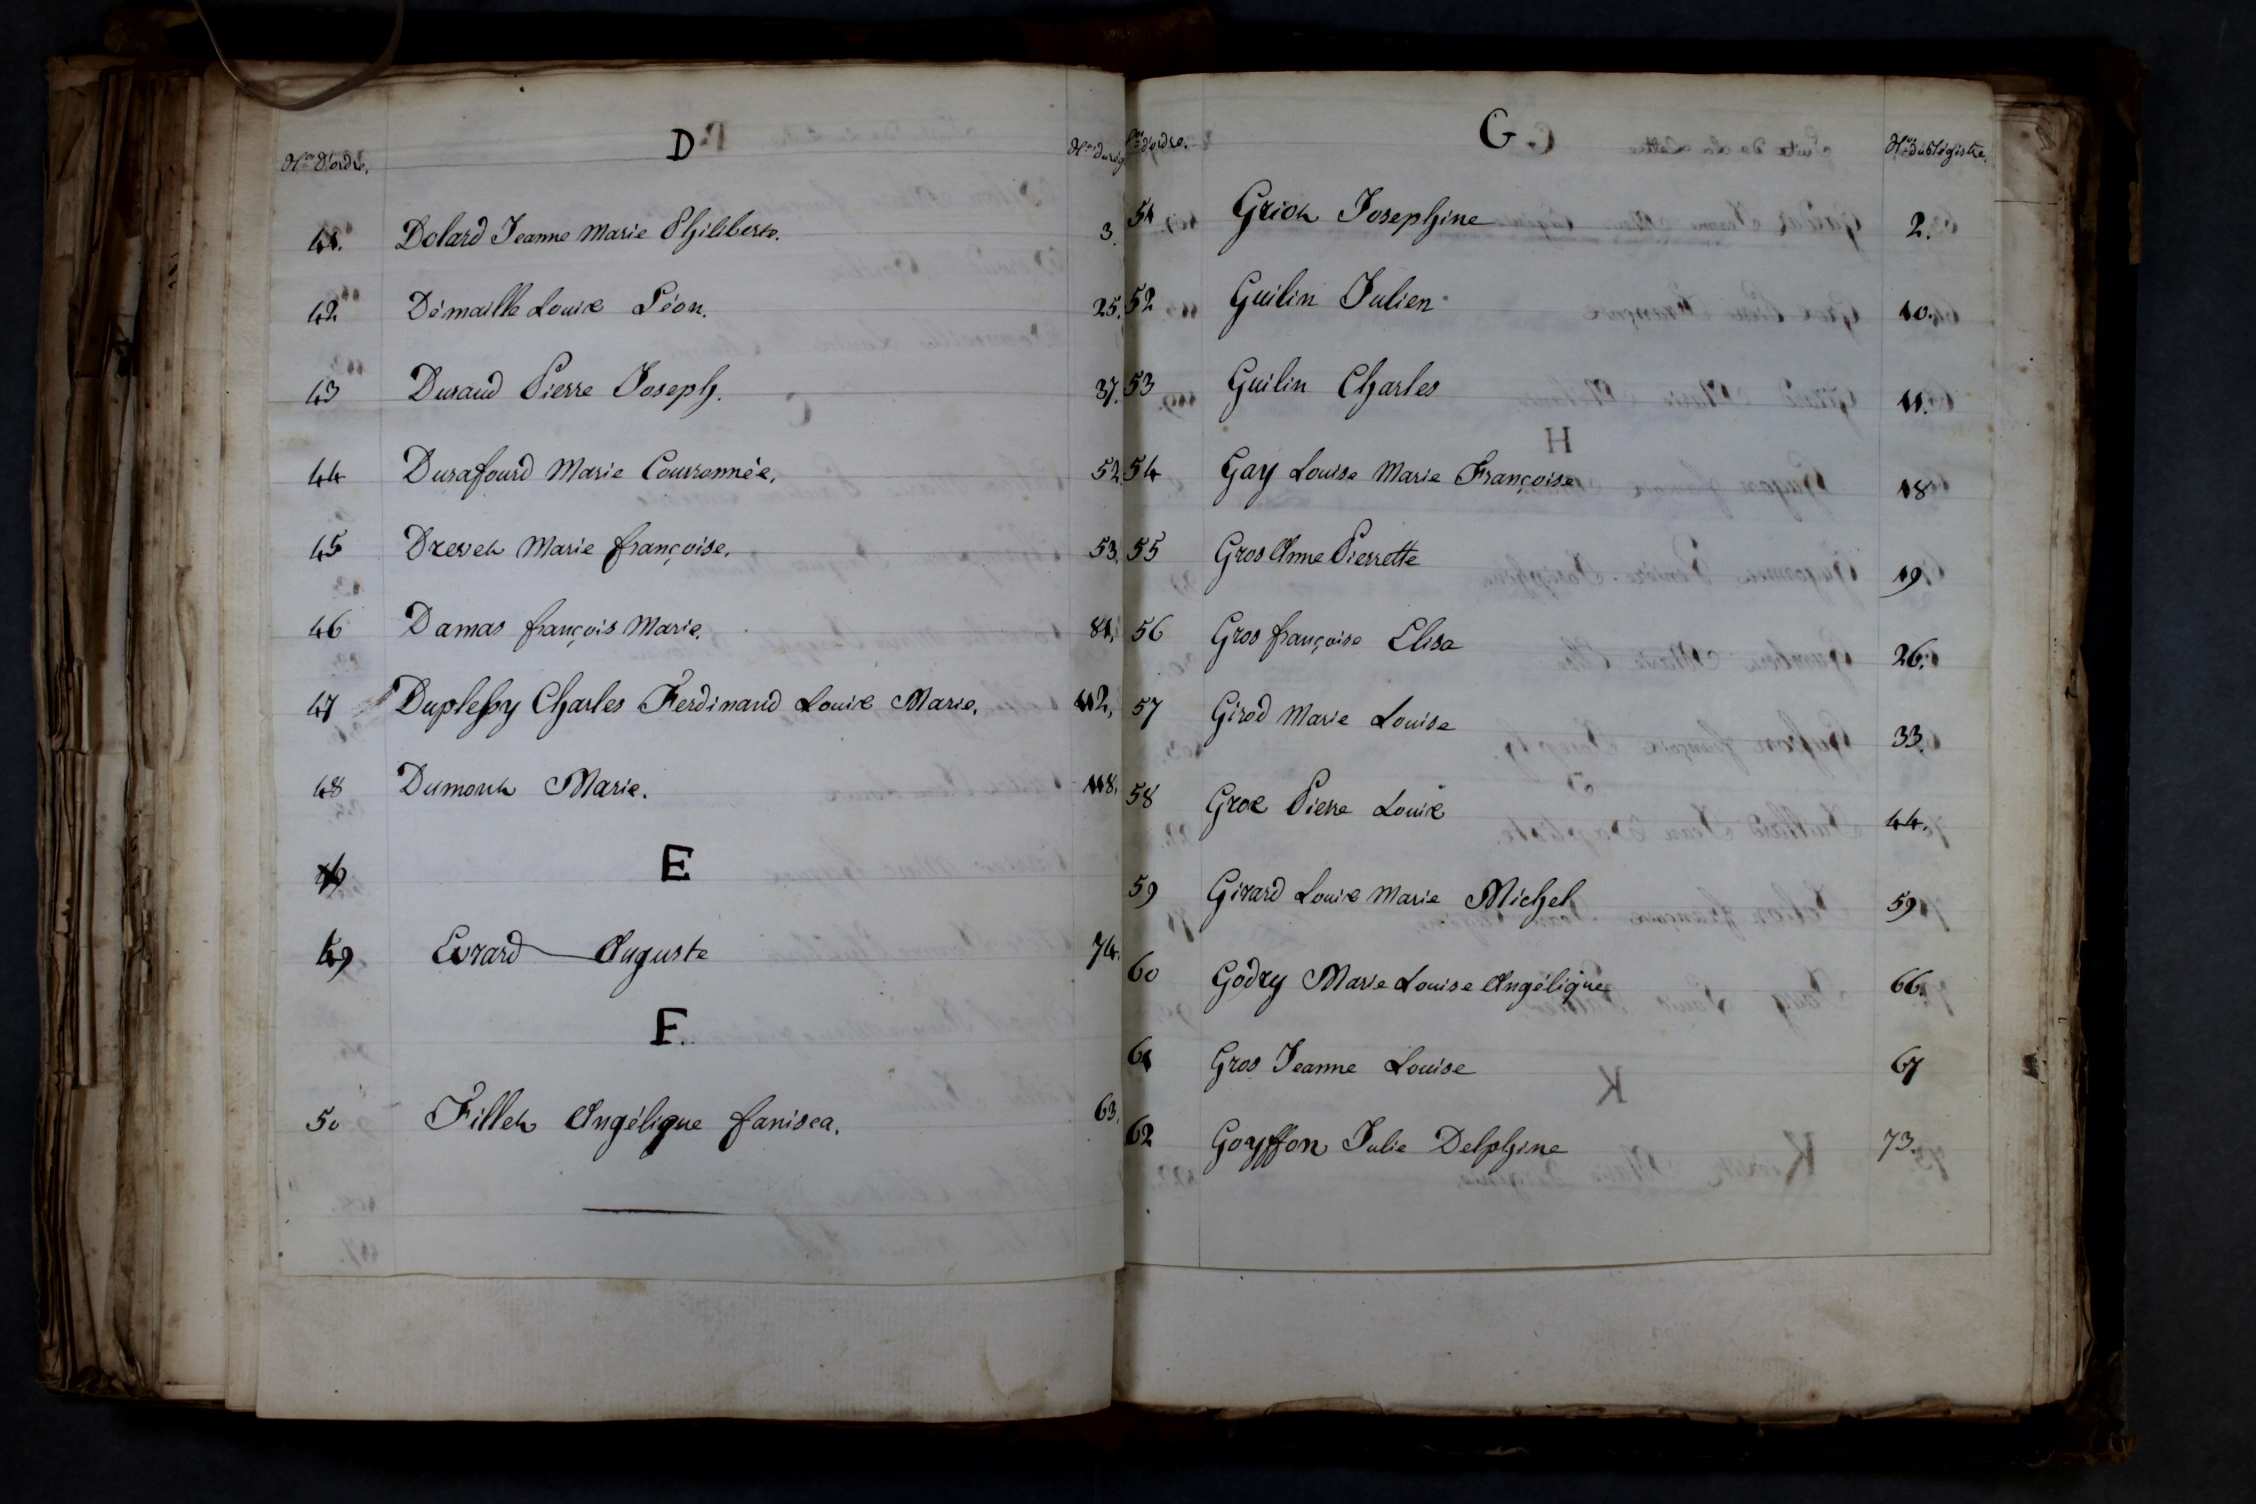 D
Nos D'ordre. Nos du rég
41. Dolard Jeanne Marie Philiberte. 3.
42 Démaille Louis Léon. 25.
43 Duraud Pierre Joseph. 37.
44 Durafourd Marie Couronnée. 52
45 Drevet Marie françoise. 53.
46 Damas françois Marie. 81.
47 Duplessy Charles Ferdinand Louis Marie. 112.
48 Dumont Marie. 118.
E
49 Evrard Auguste 74.
F.
50 Fillet Angélique fanisca. 63.
G.
Nos d'ordre. Nos du Régistre.
51 Griot Josephine 2.
52 Guilin Julien 10.
53 Guilin Charles 11.
54 Gay Louise Marie Françoise 18
55 Gros Anne Pierrette 19
56 Gros françoise Elisa 26.
57 Girod Marie Louise 33.
58 Gros Pierre Louis 44.
59 Girard Louis Marie Michel 59
60 Godry Marie Louise Angélique 66.
61 Gros Jeanne Louise 67
62 Goyffon Julie Delphine 73.